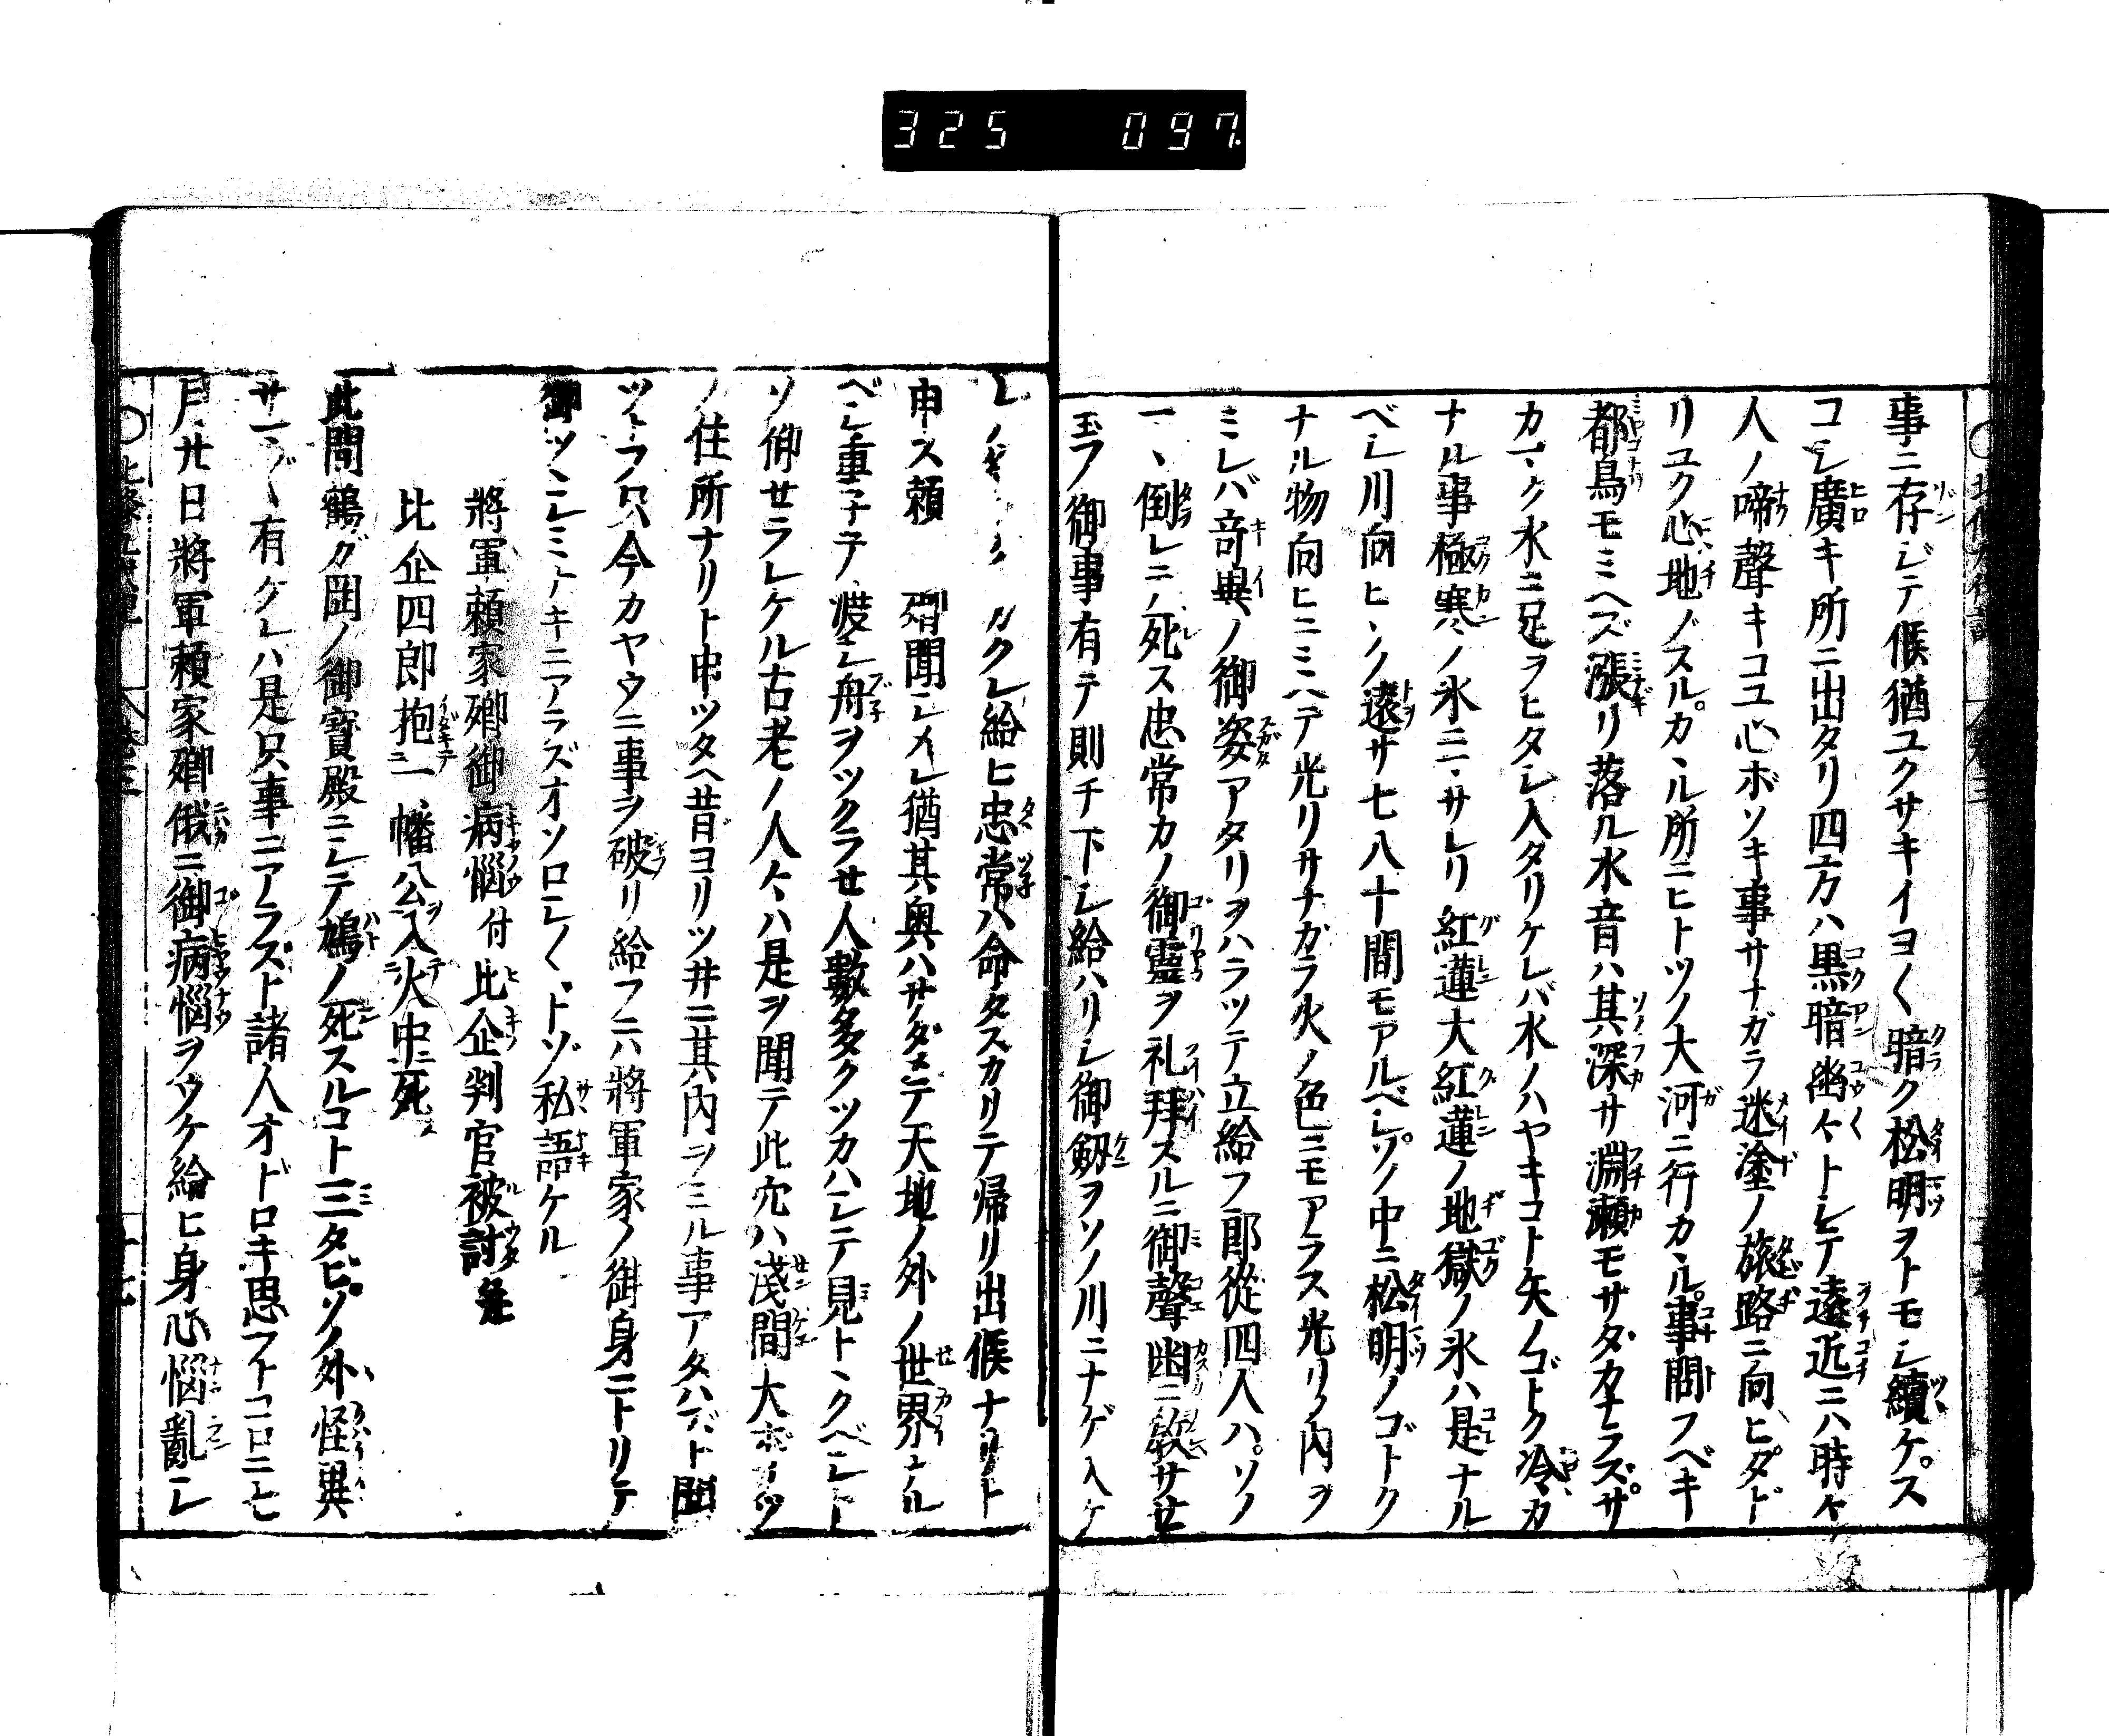 325 097
事ニ存ジテ候猶ユクサキイヨ〱暗ク松明ヲトモシ續ケ。ス
コシ廣キ所ニ出タリ四方ハ黒暗幽々トシテ遠近ニハ時々
人ノ啼聲キコユ心ボソキ事サナガラ迷塗ノ旅路ニ向ヒタド
リユク心地ゾスル。カヽル所ニヒトツノ大河ニ行カヽル。事問フベキ
都鳥モミヘズ漲リ落ル水音ハ其深サ淵瀬モサダカナラズ。サ
カマク水ニ足ヲヒタシ入タリケレバ水ノハヤキコト矢ノゴトク冷カ
ナル事極寒ノ氷ニマサレリ紅蓮大紅蓮ノ地獄ノ氷ハ是ナル
ベシ川向ヒノ遠サ七八十間モアルベシ。ソノ中ニ松明ノゴトク
ナル物向ヒニミヘテ光リサナガラ火ノ色ニモアラス光リノ内ヲ
ミレバ奇異ノ御姿アタリヲハラツテ立給フ郎從四人ハ。ソノ
マヽ倒レニ死ス忠常カノ御霊ヲ礼拜スルニ御聲幽ニ教サセ
玉フ御事有テ則チ下シ給ハリシ御劔ヲソノ川ニナゲ入ケ
カクレ給ヒ忠常ハ命タスカリテ帰リ出候ナリト
申ス頼家卿聞シメシ猶其奥ハサダメテ天地ノ外ノ世界ナル
ベシ重子テ渡シ舟ヲツクラセ人數多クツカハシテ見トヾクベシト
ソ仰セラレケル古老ノ人々ハ是ヲ聞テ此穴ハ淺間大ボサツ
ノ住所ナリト申ツタヘ昔ヨリツ井ニ其内ヲミル事アタハズト聞
ツトフ只今カヤウニ事ヲ破リ給フニハ將軍家ノ御身ニトリテ
御ツヽシミナキニアラズオソロシ〱トゾ私語ケル
將軍頼家卿御病惱付比企判官被討
比企四郎抱一幡公入火中死
此間鶴ガ岡ノ御寳殿ニシテ鳩ノ死スルコト三タビ。ソノ外怪異
サマ〲有ケレハ是只事ニアラズト諸人オドロキ思フトコロニ七
月廿日將軍頼家卿俄ニ御病惱ヲウケ給ヒ身心惱亂シ